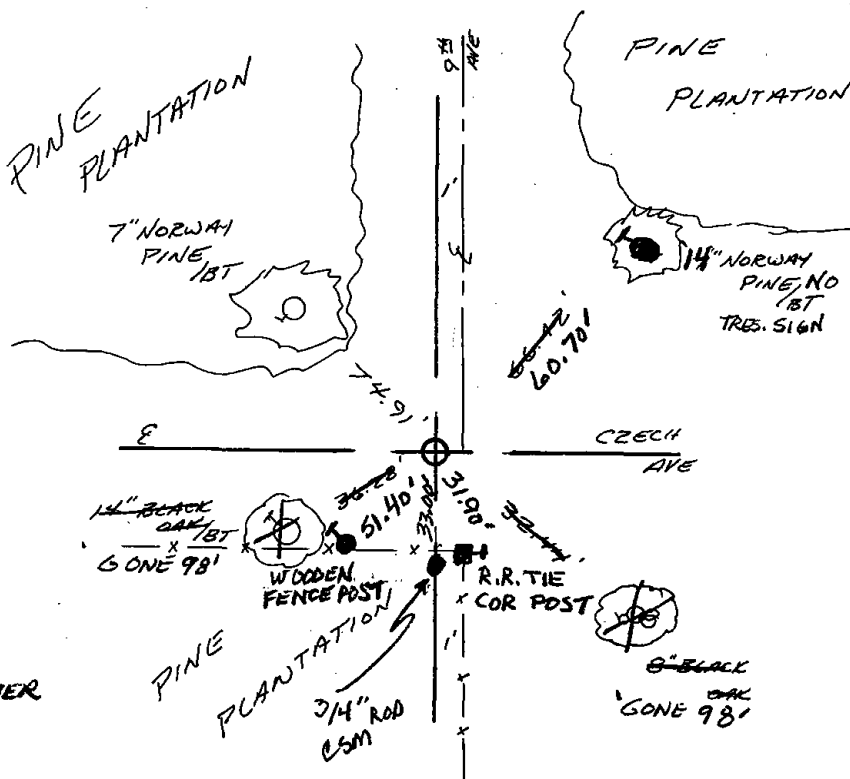 9TH
AVE
PINE
PLANTATION
PINE
PLANTATION
7" NORWAY
PINE
/BT
14" NORWAY
PINE, NO
BT
TRES. SIGN
1'
66.42'
60.70'
74.91'
CZECH
AVE
14" BLACK
OAK/BT
'GONE 98'
36.28
51.40'
33.00'
31.90'
WOODEN
FENCE POST
R.R. TIE
COR POST
PINE
PLANTATION
3/4" ROD
CSM
1'
8" BLACK
OAK
'GONE 98'